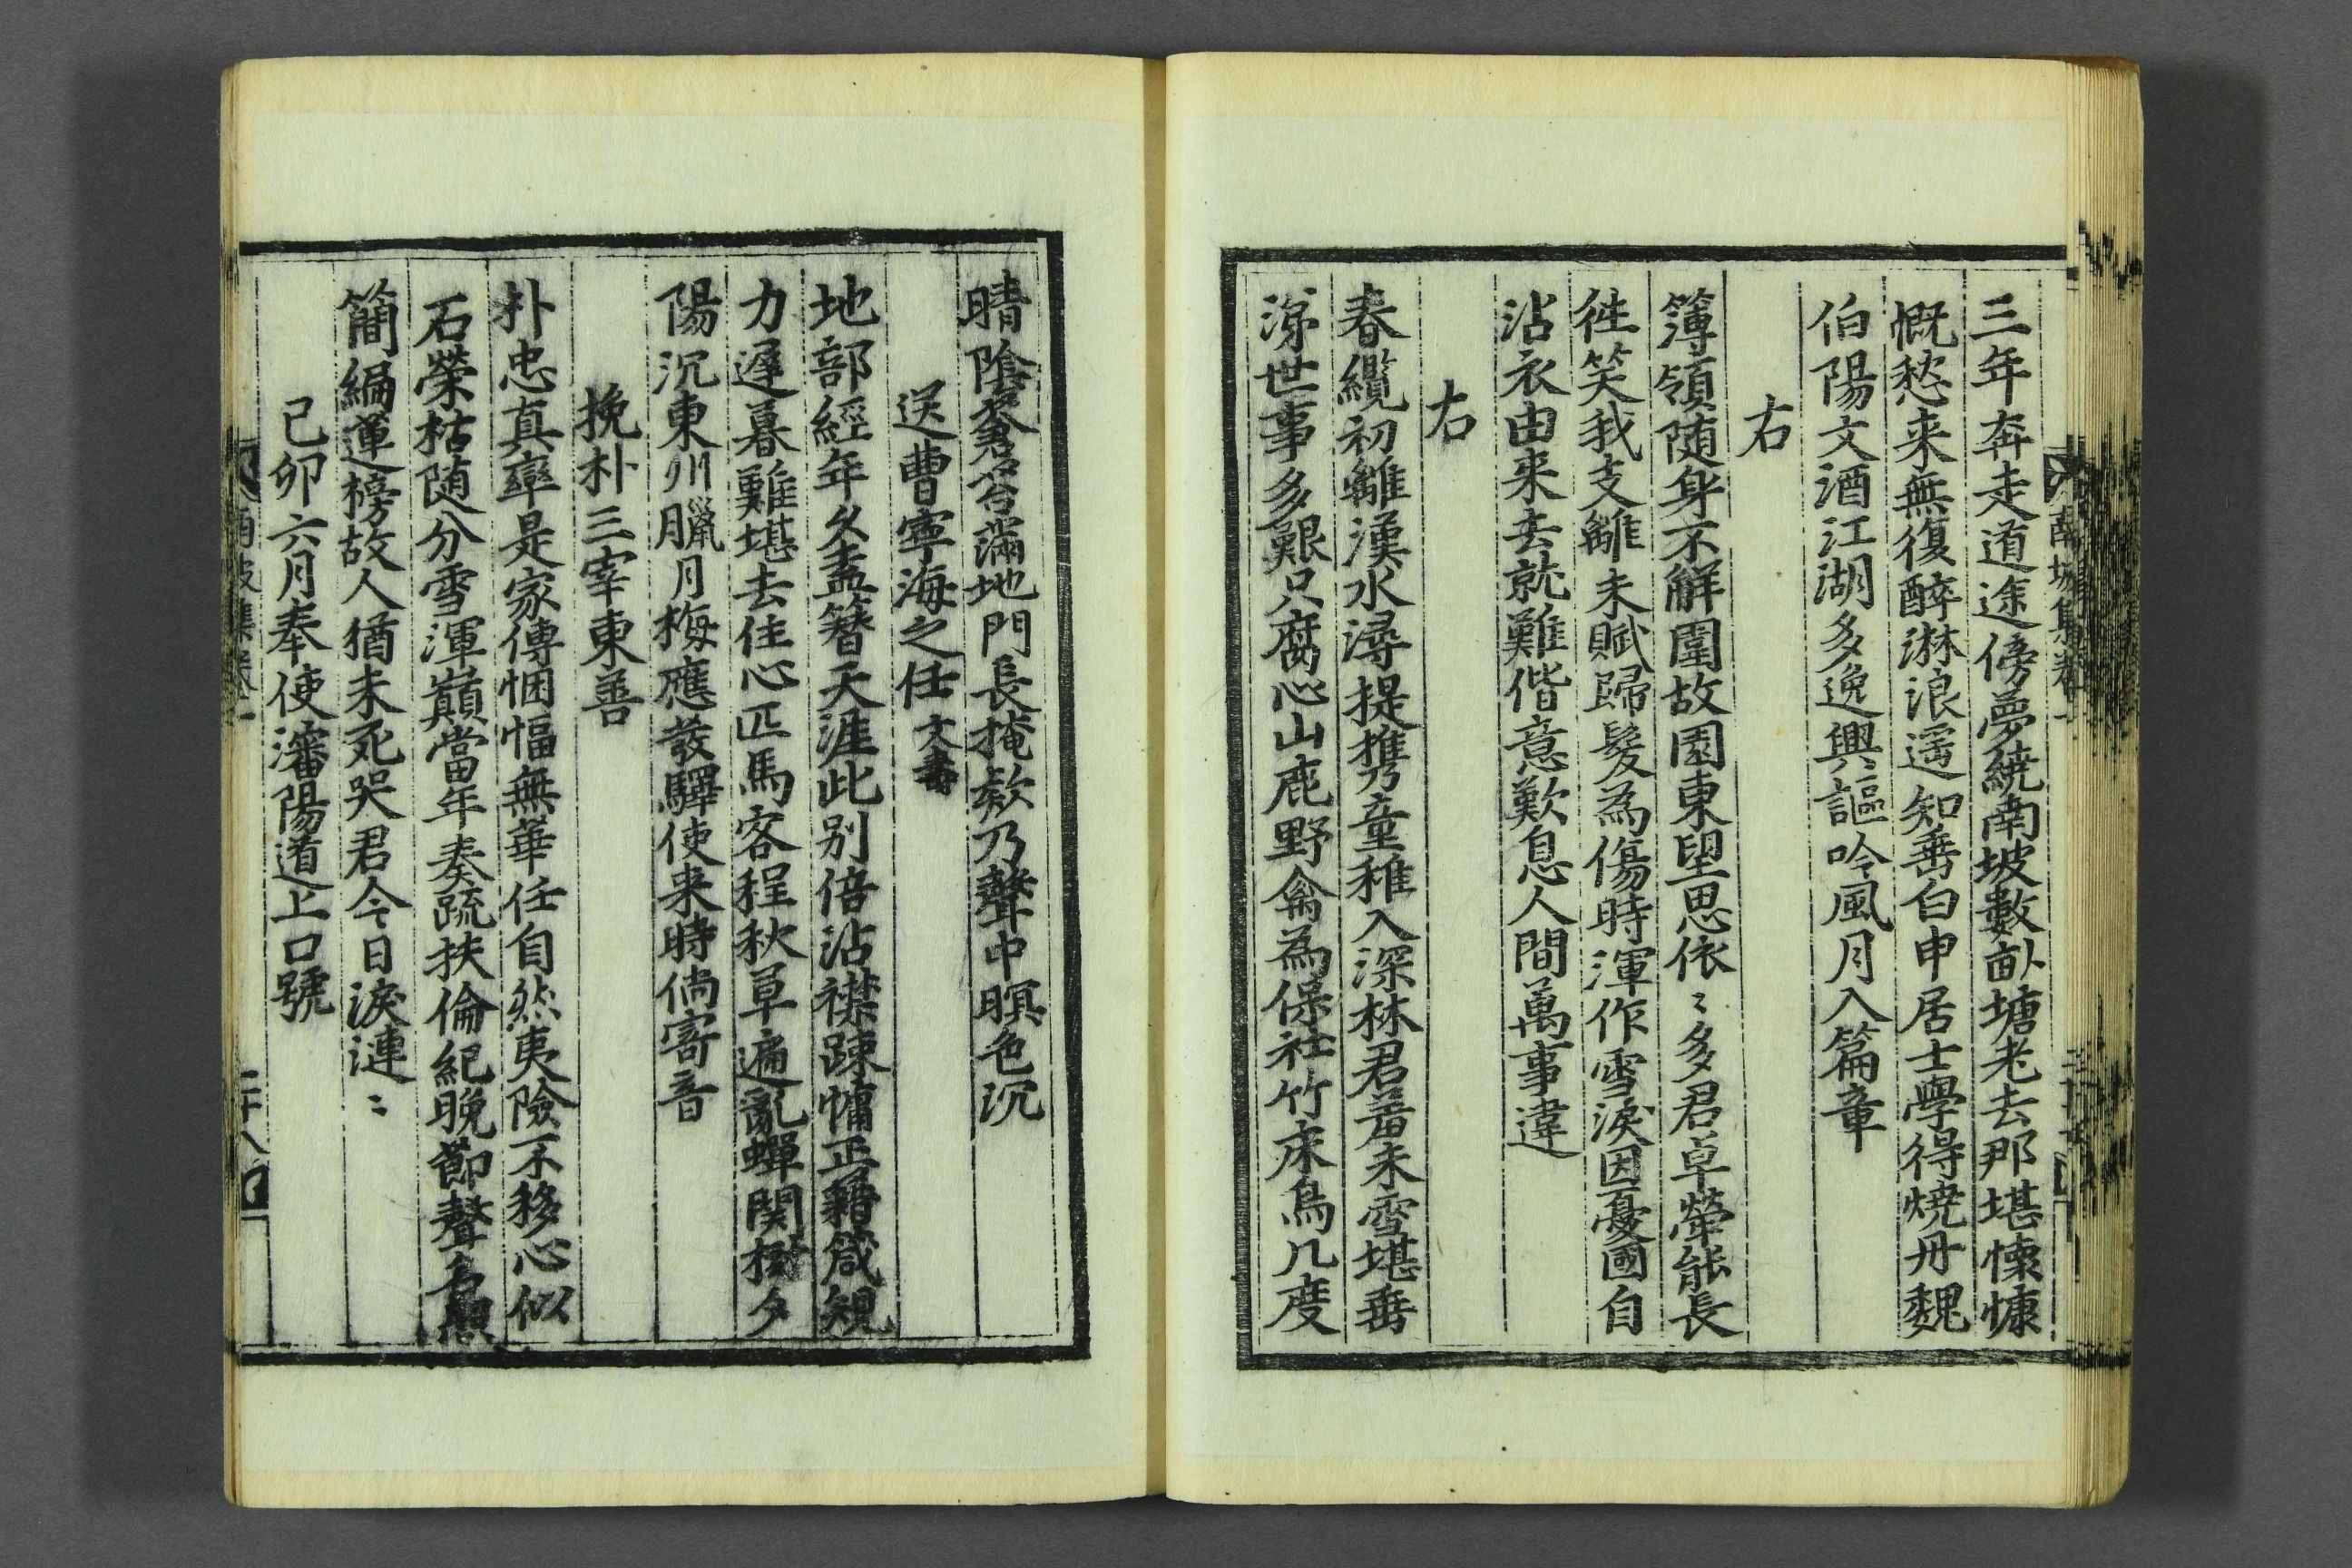 三年奔走道途傍夢繞南坡數畝塘老去那堪懷慷
慨愁来無復醉淋浪遥知垂白申居士學得燒丹魏
伯陽文酒江湖多逸興謳吟風月入篇章
右
簿領随身不解圍故園東望思依〻多君草帶能長
徃笑我支離未賦歸髮為傷時渾作雪淚因憂國自
沾衣由来去就難偕意歎息人間萬事違
右
春纜初離漢水潯提携童稚入深林君羞未雪堪垂
涕世事多艱只腐心山鹿野禽為保社竹床烏几度
晴陰蒼苔滿地門長掩欸乃聲中暝色沉
送曹寧海之任文秀
地部經年久盍簪天涯此别倍沾襟踈慵正藉箴規
力遲暮難堪去住心匹馬客程秋草遍亂蟬関樹夕
陽沉東州臘月梅應發驛使来時倘寄音
挽朴三宰東善
朴忠真率是家傳悃愊無華任自然夷險不移心似
石榮枯随分雪渾巔當年奏疏扶倫紀晚節聲名顯
簡編蓮榜故人猶未死哭君今日淚漣〻
己卯六月奉使瀋陽道上口號
南坡集卷一
南坡集卷一
二十八